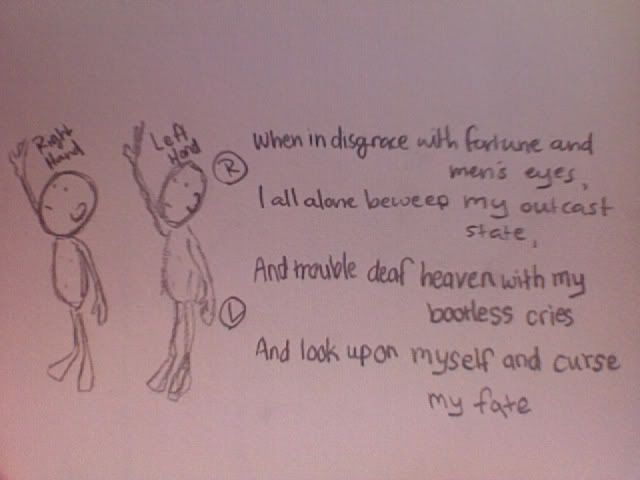 Right
Hand
Left
Hand
R
When in disgrace with fortune and
men's eyes,
I all alone beweep my outcast
state,
L
And trouble deaf heaven with my
bootless cries
And look upon myself and curse
my fate